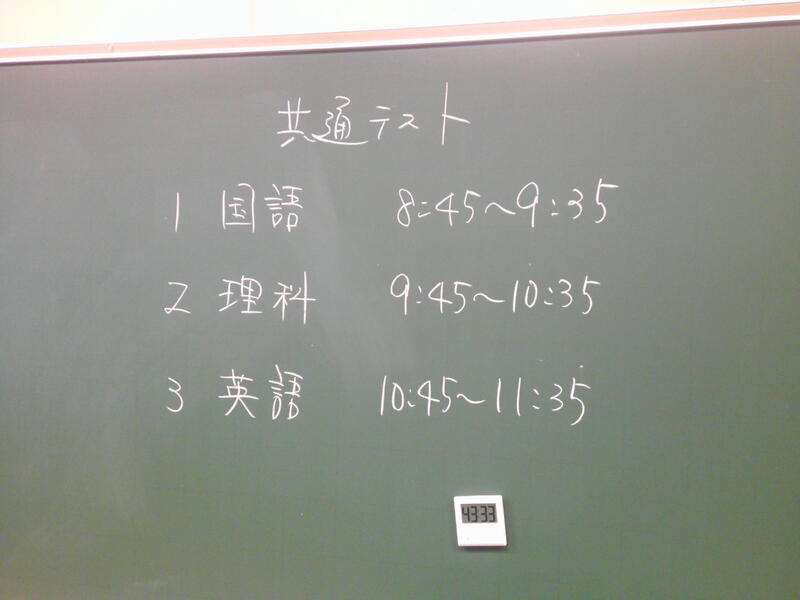 共通テスト
1 国語 8:45～9:35
2 理科 9:45～10:35
3 英語 10:45～11:35
4333